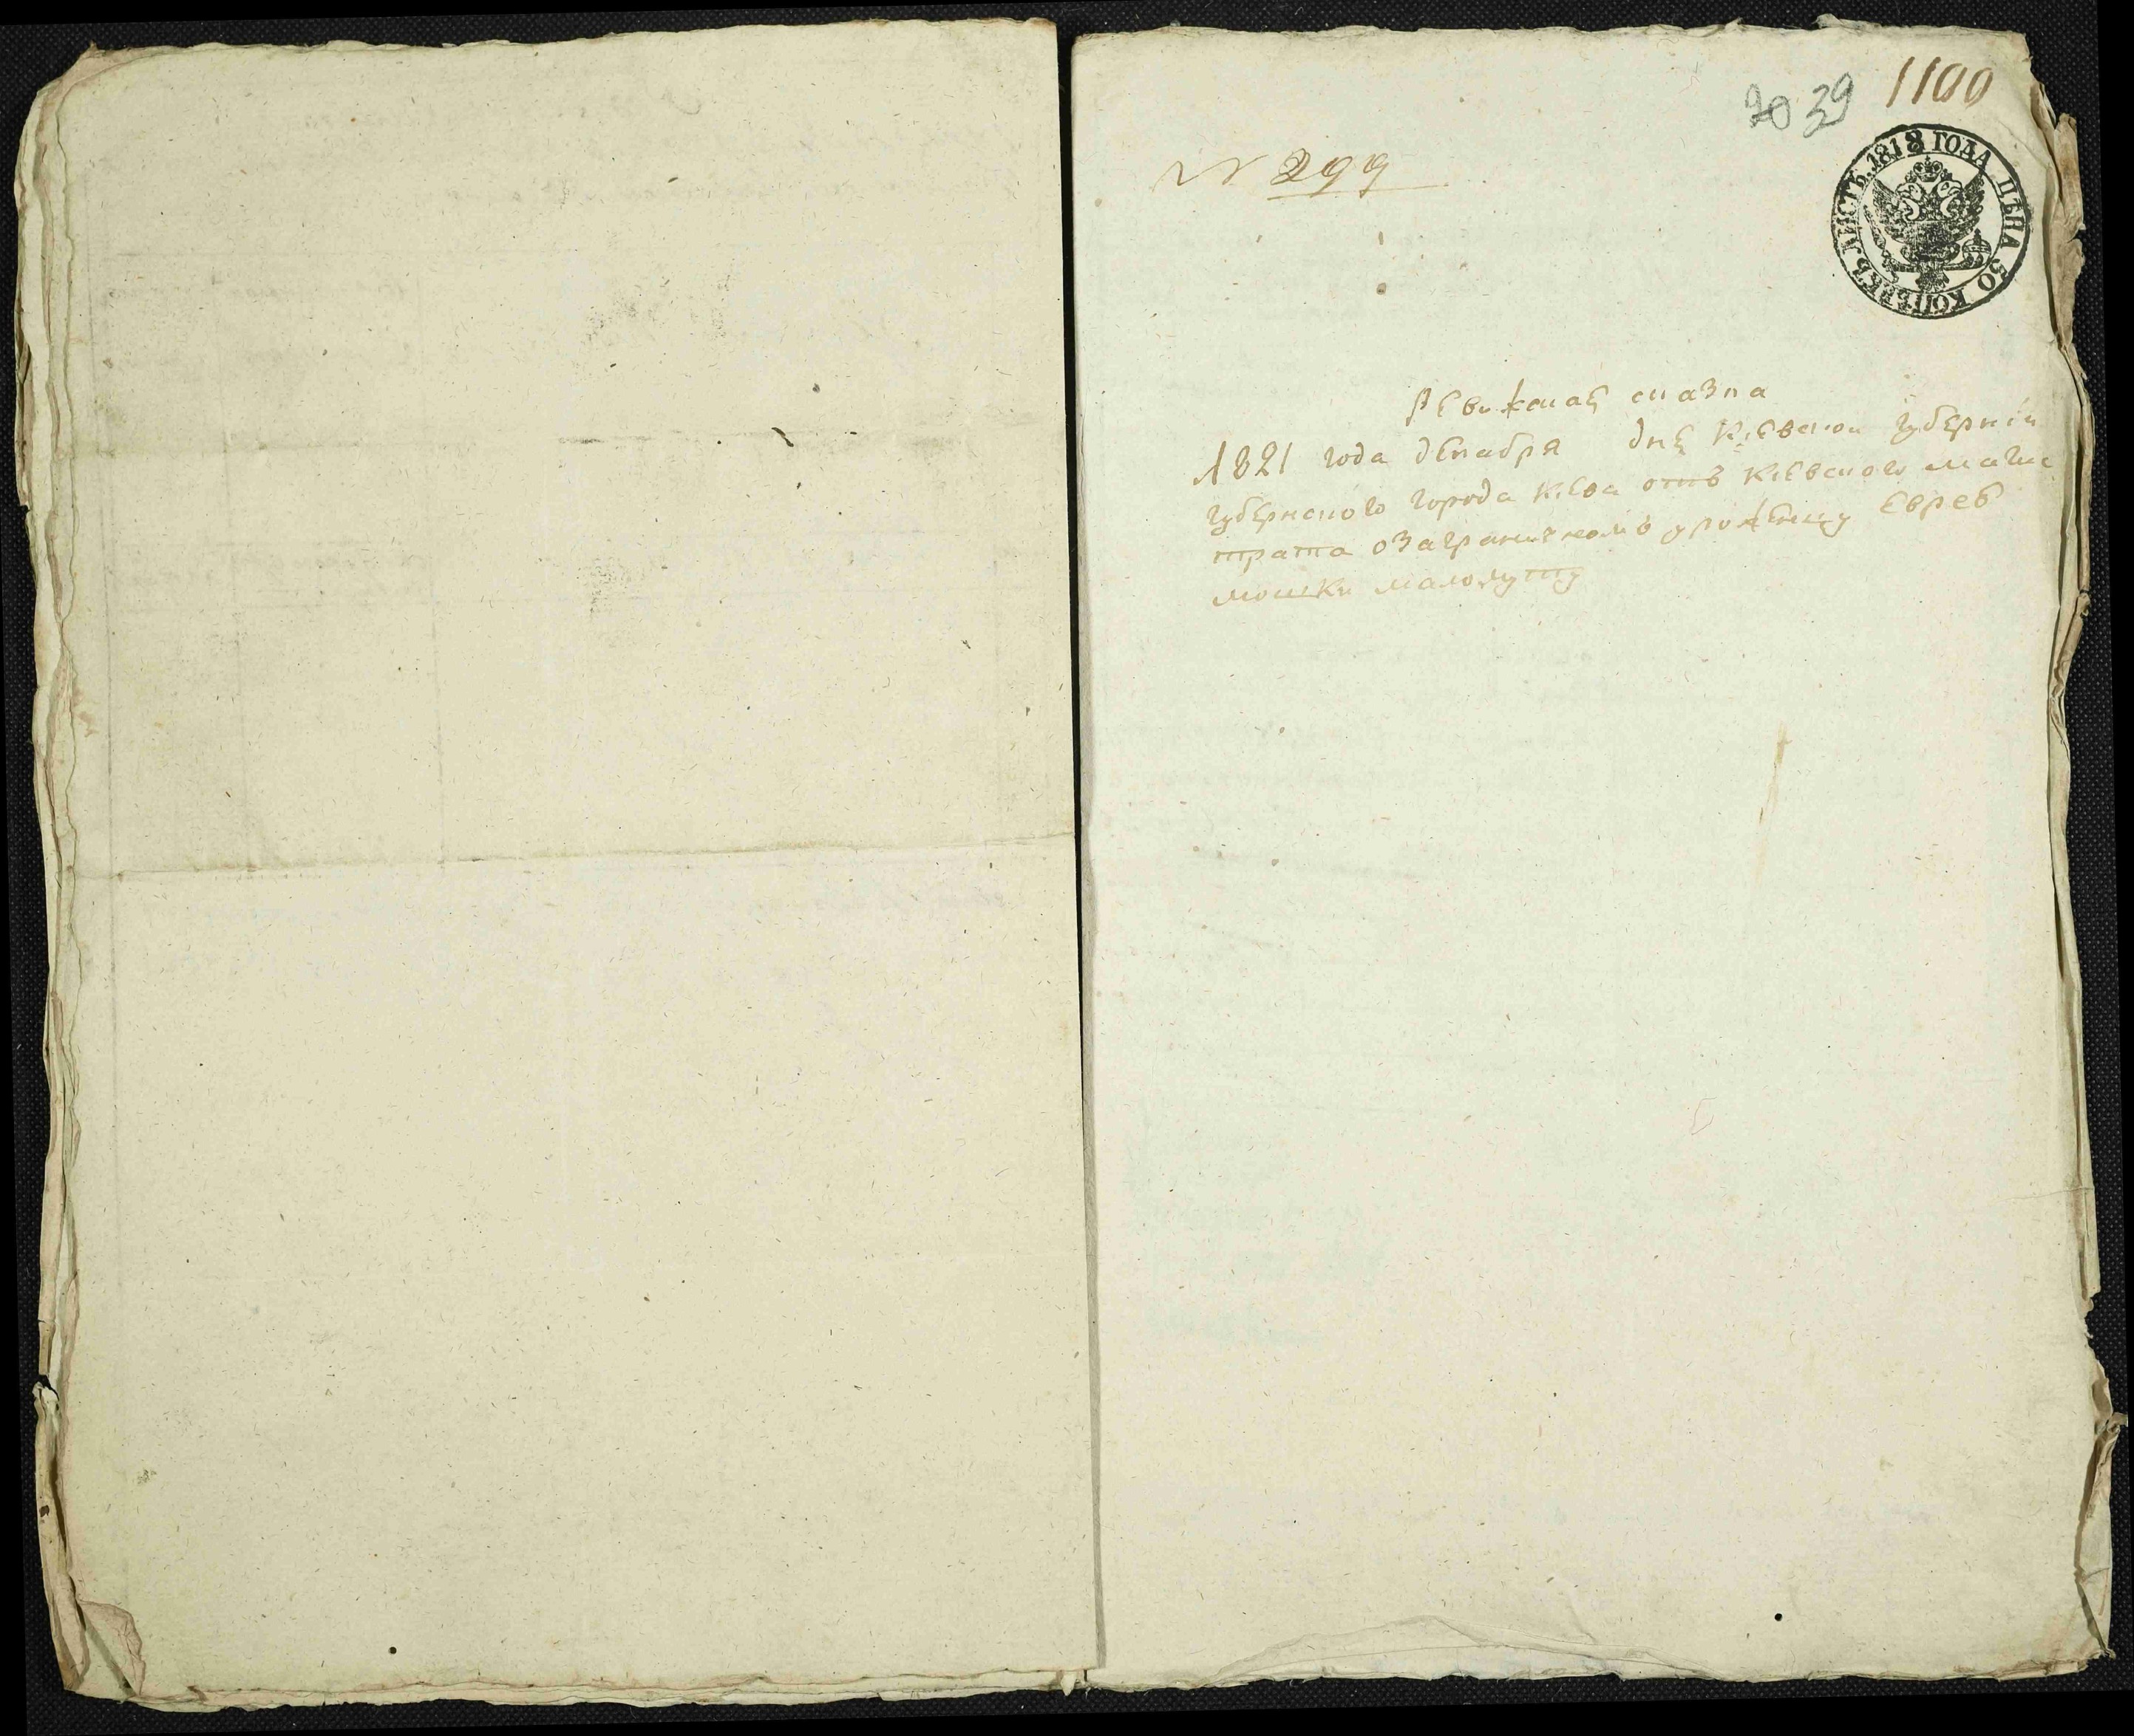 20 39 1100
№ 299
ЛИСТЪ. 1818 ГОДА ЦѢНА 50 КОПѢЕКЪ.
Ревижская сказка
1821 года декабря дня Киевской губернiи
губернского города Киева отъ Киевского магис
трата озаграничномъ уроженцу Еврее
мошки